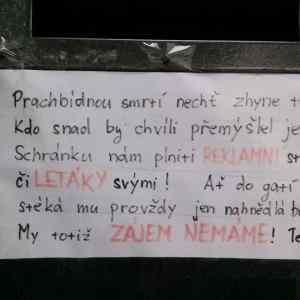 Prachbídnou smrtí nechť zhyne t
Kdo snad by chvíli přemýšlel je
Schránku nám plniti REKLAMNÍ st
či LETÁKY svými! Ať do gatí
stéká mu provždy jen nahnědlá b
My totiž ZÁJEM NEMÁME! Te